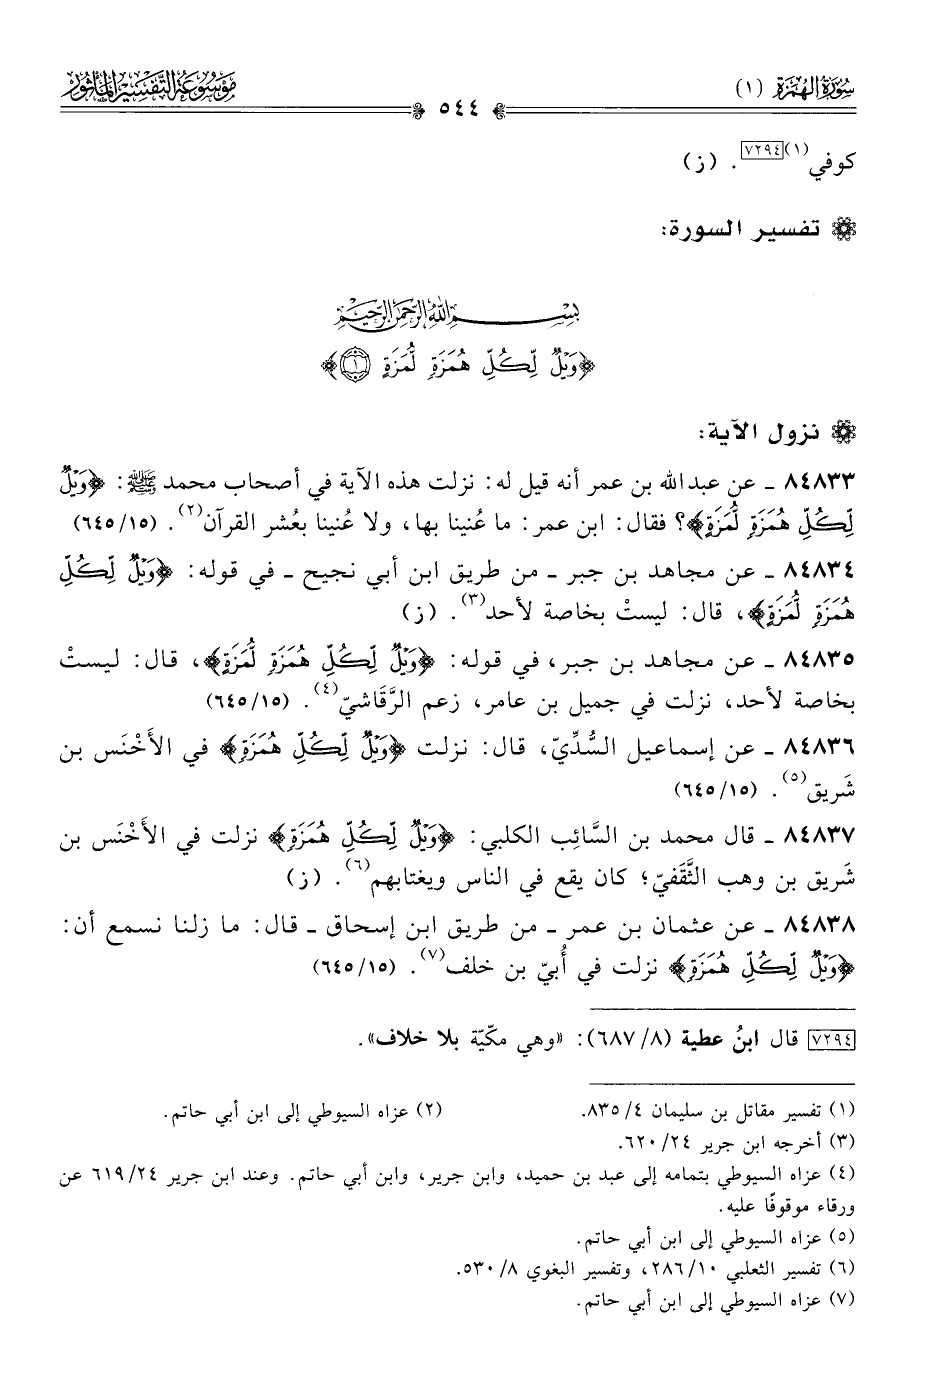 سُورَةُ الهُمَزَةِ (١)
٥٤٤
مَوْسُوعَةُ التَّفْسِيْرِ المَأْثُورِ
كوفي(١)[٧٢٩٤]. (ز)
تفسير السورة:
بِسْمِ اللَّهِ الرَّحْمَنِ الرَّحِيمِ
﴿وَيْلٌ لِّكُلِّ هُمَزَةٍ لُّمَزَةٍ ۝١﴾
نزول الآية:
٨٤٨٣٣ ـ عن عبدالله بن عمر أنه قيل له: نزلت هذه الآية في أصحاب محمد ﷺ: ﴿وَيْلٌ
لِّكُلِّ هُمَزَةٍ لُّمَزَةٍ﴾؟ فقال: ابن عمر: ما عُنينا بها، ولا عُنينا بعُشر القرآن(٢). (١٥/ ٦٤٥)
٨٤٨٣٤ ـ عن مجاهد بن جبر ـ من طريق ابن أبي نجيح ـ في قوله: ﴿وَيْلٌ لِّكُلِّ
هُمَزَةٍ لُّمَزَةٍ﴾، قال: ليستْ بخاصة لأحد(٣). (ز)
٨٤٨٣٥ ـ عن مجاهد بن جبر، في قوله: ﴿وَيْلٌ لِّكُلِّ هُمَزَةٍ لُّمَزَةٍ﴾، قال: ليستْ
بخاصة لأحد، نزلت في جميل بن عامر، زعم الرَّقَاشيّ(٤). (١٥/ ٦٤٥)
٨٤٨٣٦ ـ عن إسماعيل السُّدِّيّ، قال: نزلت ﴿وَيْلٌ لِّكُلِّ هُمَزَةٍ﴾ في الأَخْنَس بن
شَريق(٥). (١٥/ ٦٤٥)
٨٤٨٣٧ ـ قال محمد بن السَّائِب الكلبي: ﴿وَيْلٌ لِّكُلِّ هُمَزَةٍ﴾ نزلت في الأَخْنَس بن
شَريق بن وهب الثَّقَفيّ؛ كان يقع في الناس ويغتابهم(٦). (ز)
٨٤٨٣٨ ـ عن عثمان بن عمر ـ من طريق ابن إسحاق ـ قال: ما زلنا نسمع أن:
﴿وَيْلٌ لِّكُلِّ هُمَزَةٍ﴾ نزلت في أُبيّ بن خلف(٧). (١٥/ ٦٤٥)
[٧٢٩٤] قال ابنُ عطية (٨/ ٦٨٧): «وهي مكيّة بلا خلاف».
(١) تفسير مقاتل بن سليمان ٤/ ٨٣٥. (٢) عزاه السيوطي إلى ابن أبي حاتم.
(٣) أخرجه ابن جرير ٢٤/ ٦٢٠.
(٤) عزاه السيوطي بتمامه إلى عبد بن حميد، وابن جرير، وابن أبي حاتم. وعند ابن جرير ٢٤/ ٦١٩ عن
ورقاء موقوفًا عليه.
(٥) عزاه السيوطي إلى ابن أبي حاتم.
(٦) تفسير الثعلبي ١٠/ ٢٨٦، وتفسير البغوي ٨/ ٥٣٠.
(٧) عزاه السيوطي إلى ابن أبي حاتم.